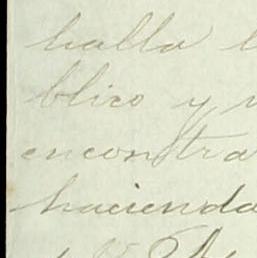 halla
blico y
encontra
hacienda